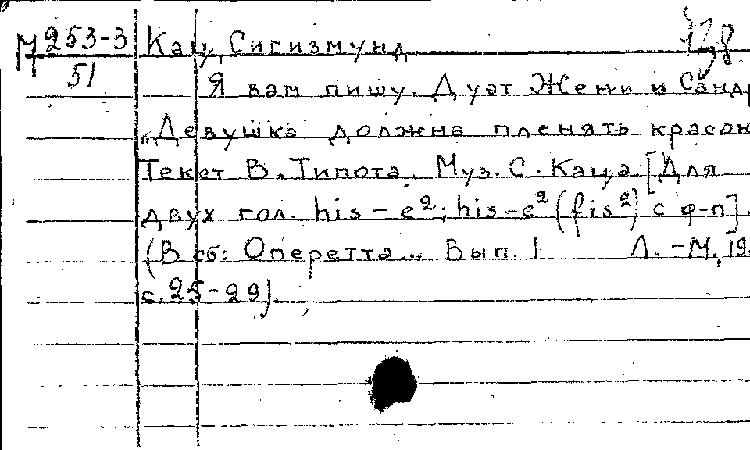 М 253-3 Кац, Сигизмунд
51
Я вам пишу. Дуэт Жени и Санд
"Девушка должна пленять красо
Текст В. Типота. Муз. С. Каца. [Для
двух гол. his - e²; his - e² (fis²) с ф-п]
(В сб: Оперетта... Вып. 1 Л. - М, 19
с. 25 - 29).